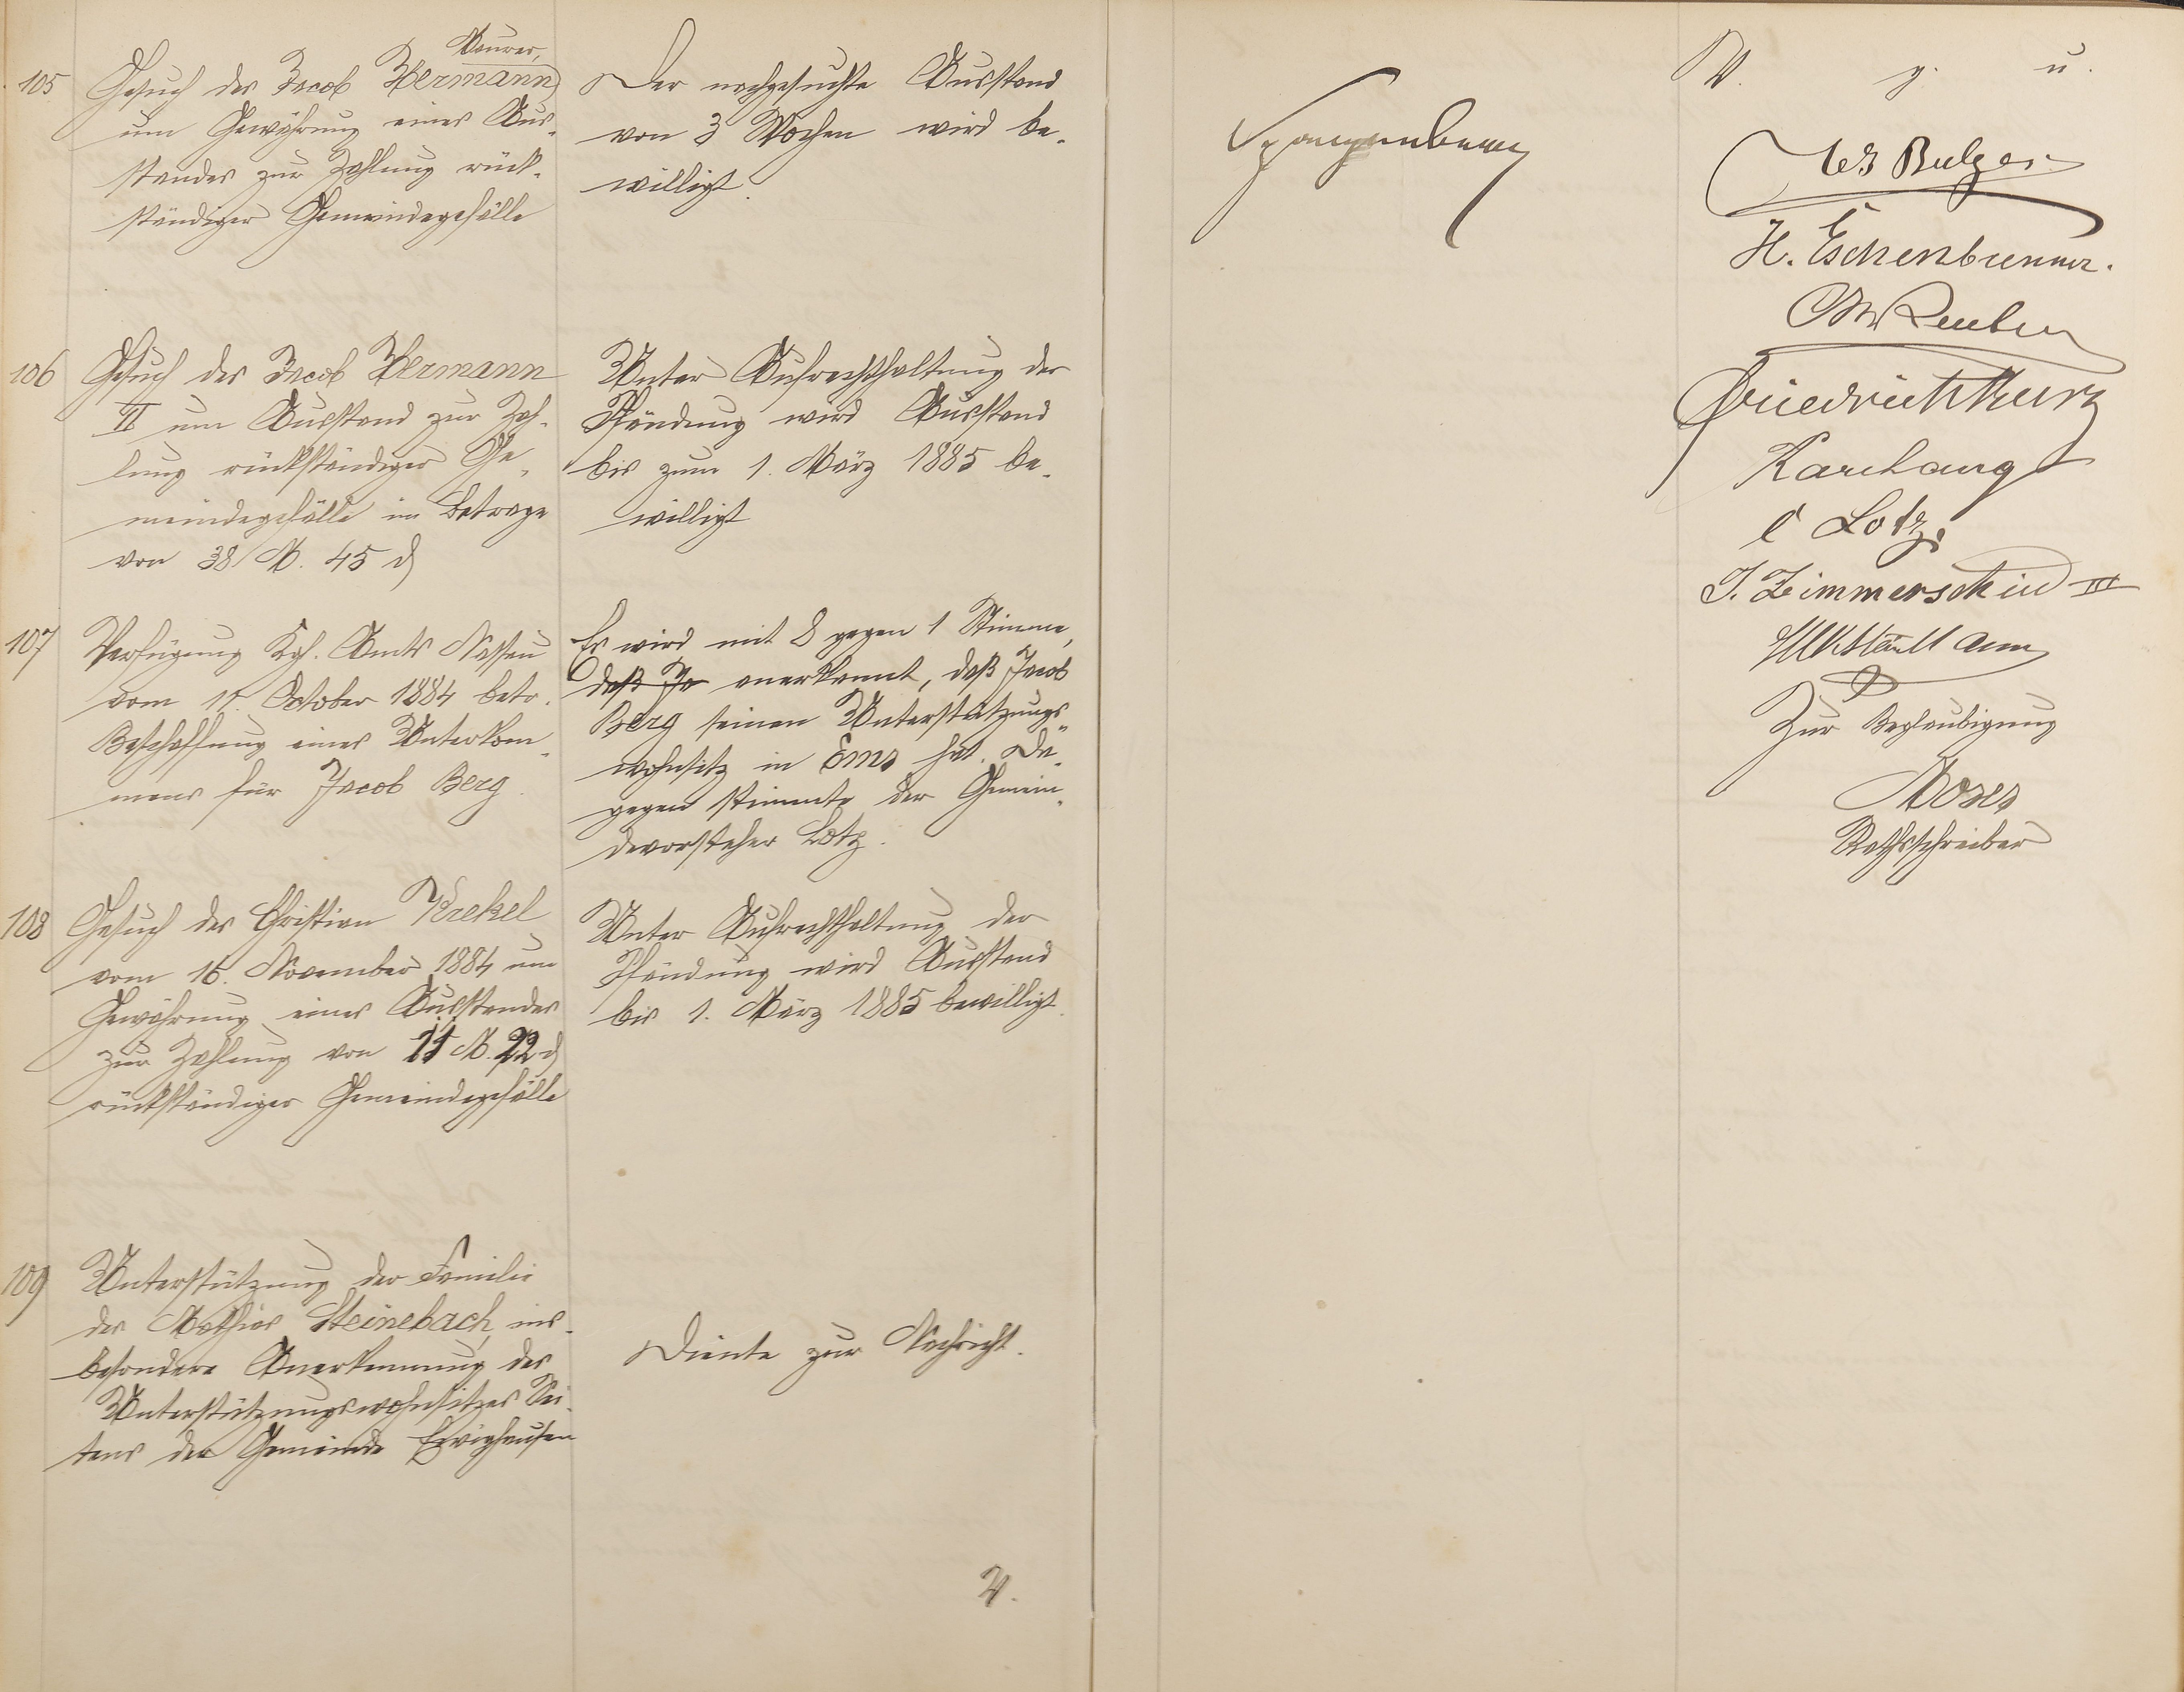 105
Maurer,
Gesuch des Jacob Hermann
um Gewährung eines Aus-
standes zur Zahlung rück-
ständiger Gemeindegefälle
Der nachgesuchte Ausstand
von 3 Wochen wird be-
willigt.
106
Gesuch des Jacob Hermann
II um Ausstand zur Zah-
lung rückständiger Ge-
meindegefälle im Betrage
von 38 M. 45 d
Unter Aufrechthaltung der
Pfändung wird Ausstand
bis zum 1. März 1885 be-
willigt
107
Verfügung Kgl. Amts Nassau
vom October 1884 betr.
Beschaffung eines Unterkom-
mens für Jacob Berg.
Es wird mit 8 gegen 1 Stimme,
daß Ja anerkannt, daß Jacob
Berg seinen Unterstützungs-
wohnsitz in Ems hat. Da-
gegen stimmte der Gemein-
devorsteher Lotz.
108
Gesuch des Christian Krekel
vom 16. November 1884 um
Gewährung eines Ausstandes
zur Zahlung von M. 22 d
rückständiger Gemeindegefälle
Unter Aufrechthaltung der
Pfändung wird Ausstand
bis 1. März 1885 bewilligt.
109
Unterstützung der Familie
des Mathias Steinebach, ins-
besondere Anerkennung des
Unterstützungswohnsitzes Sei-
tens der Gemeinde
Diente zur Nachricht.
V.
Spangenberg
V. g. u.
Balzer
H. Eschenbrenner.
Friedrich Kurz
Karl Lang
C Lotz
J. Zimmerschied III
Zur Beglaubigung
Moses
Rathsschreiber